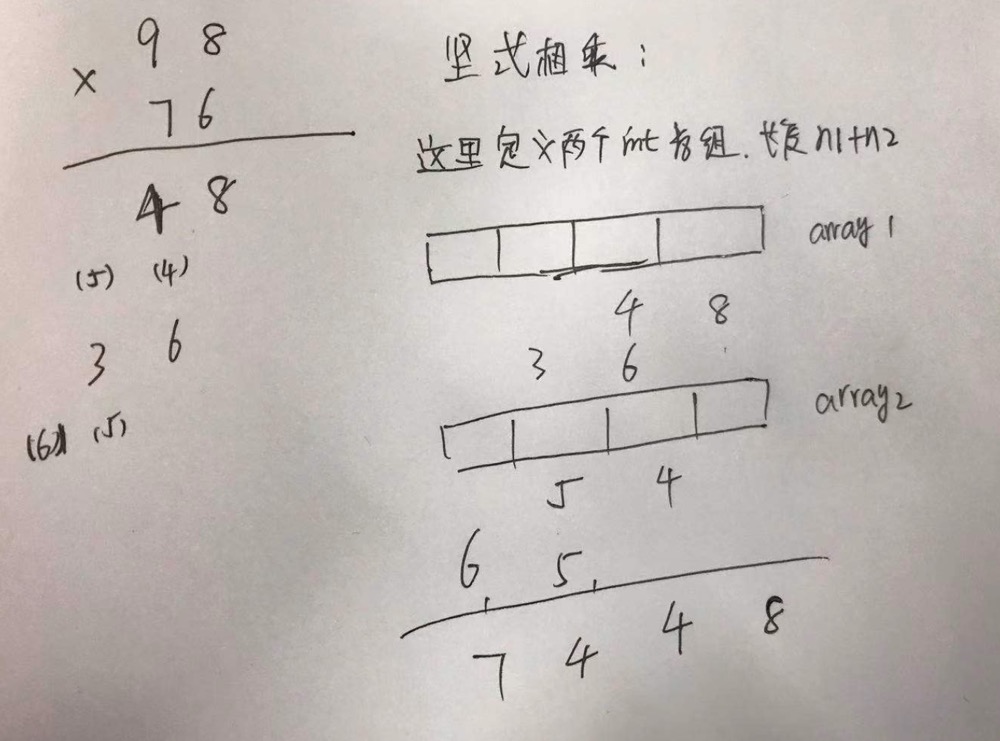 9 8
× 7 6
4 8
(5) (4)
3 6
(6) (5)
坚式相乘：
这里定义两个int数组.长度n1+n2
array1
4 8
3 6
array2
5 4
6 5
7 4 4 8